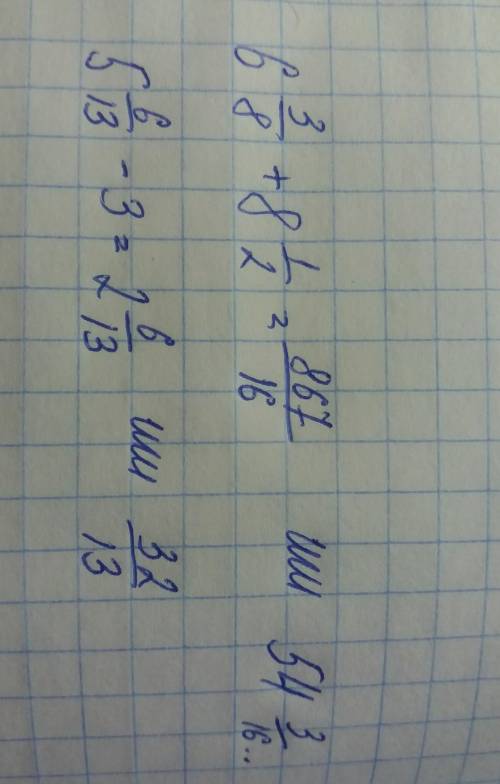 6 3/8 + 8 1/2 = 867/16 или 54 3/16..
5 6/13 - 3 = 2 6/13 или 32/13